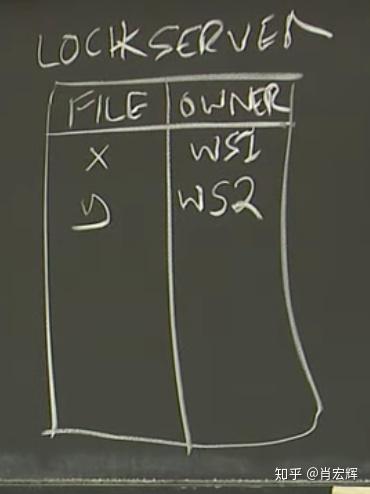 LOCKSERVER
FILE OWNER
X WS1
y WS2
知乎 @肖宏辉